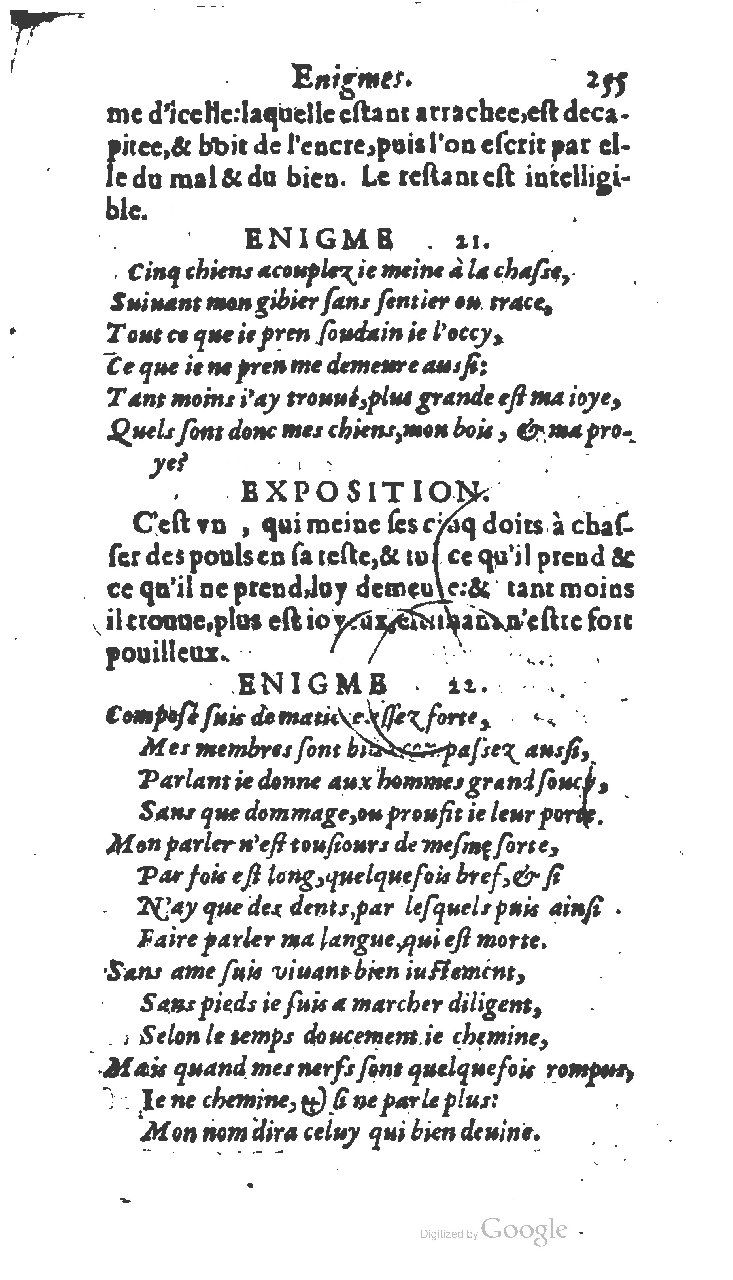 Enigmes. 255
me d'icelle:laquelle eſtant arrachee,eſt deca-
pitee,& boit de l'encre,puis l'on eſcrit par el-
le du mal & du bien. Le reſtant eſt intelligi-
ble.
ENIGME 21.
Cinq chiens acouplez ie meine à la chaſſe,
Suiuant mon gibier ſans ſentier ou trace,
Tout ce que ie pren ſoudain ie l'occy,
Ce que ie ne pren me demeure auſsi:
Tant moins i'ay trouué,plus grande eſt ma ioye,
Quels ſont donc mes chiens,mon bois, & ma pro-
ye?
EXPOSITION.
C'eſt vn , qui meine ſes cinq doits à chaſ-
ſer des pouls en ſa teſte,& tu ce qu'il prend &
ce qu'il ne prend,luy demeure:& tant moins
il trouue,plus eſt ioyeux, n'eſtre fort
pouilleux.
ENIGME 22.
Compoſé ſuis de matiere aſſez forte,
Mes membres ſont bien compaſſez auſsi,
Parlant ie donne aux hommes grand ſoucy,
Sans que dommage,ou proufit ie leur porte.
Mon parler n'eſt touſiours de meſme ſorte,
Par fois eſt long,quelquefois bref,& ſi
N'ay que des dents,par leſquels puis ainſi
Faire parler ma langue,qui eſt morte.
Sans ame ſuis viuant bien iuſtement,
Sans pieds ie ſuis a marcher diligent,
Selon le temps doucement ie chemine,
Mais quand mes nerfs ſont quelquefois rompus,
Ie ne chemine, & ſi ne parle plus:
Mon nom dira celuy qui bien deuine.
Digitized by Google